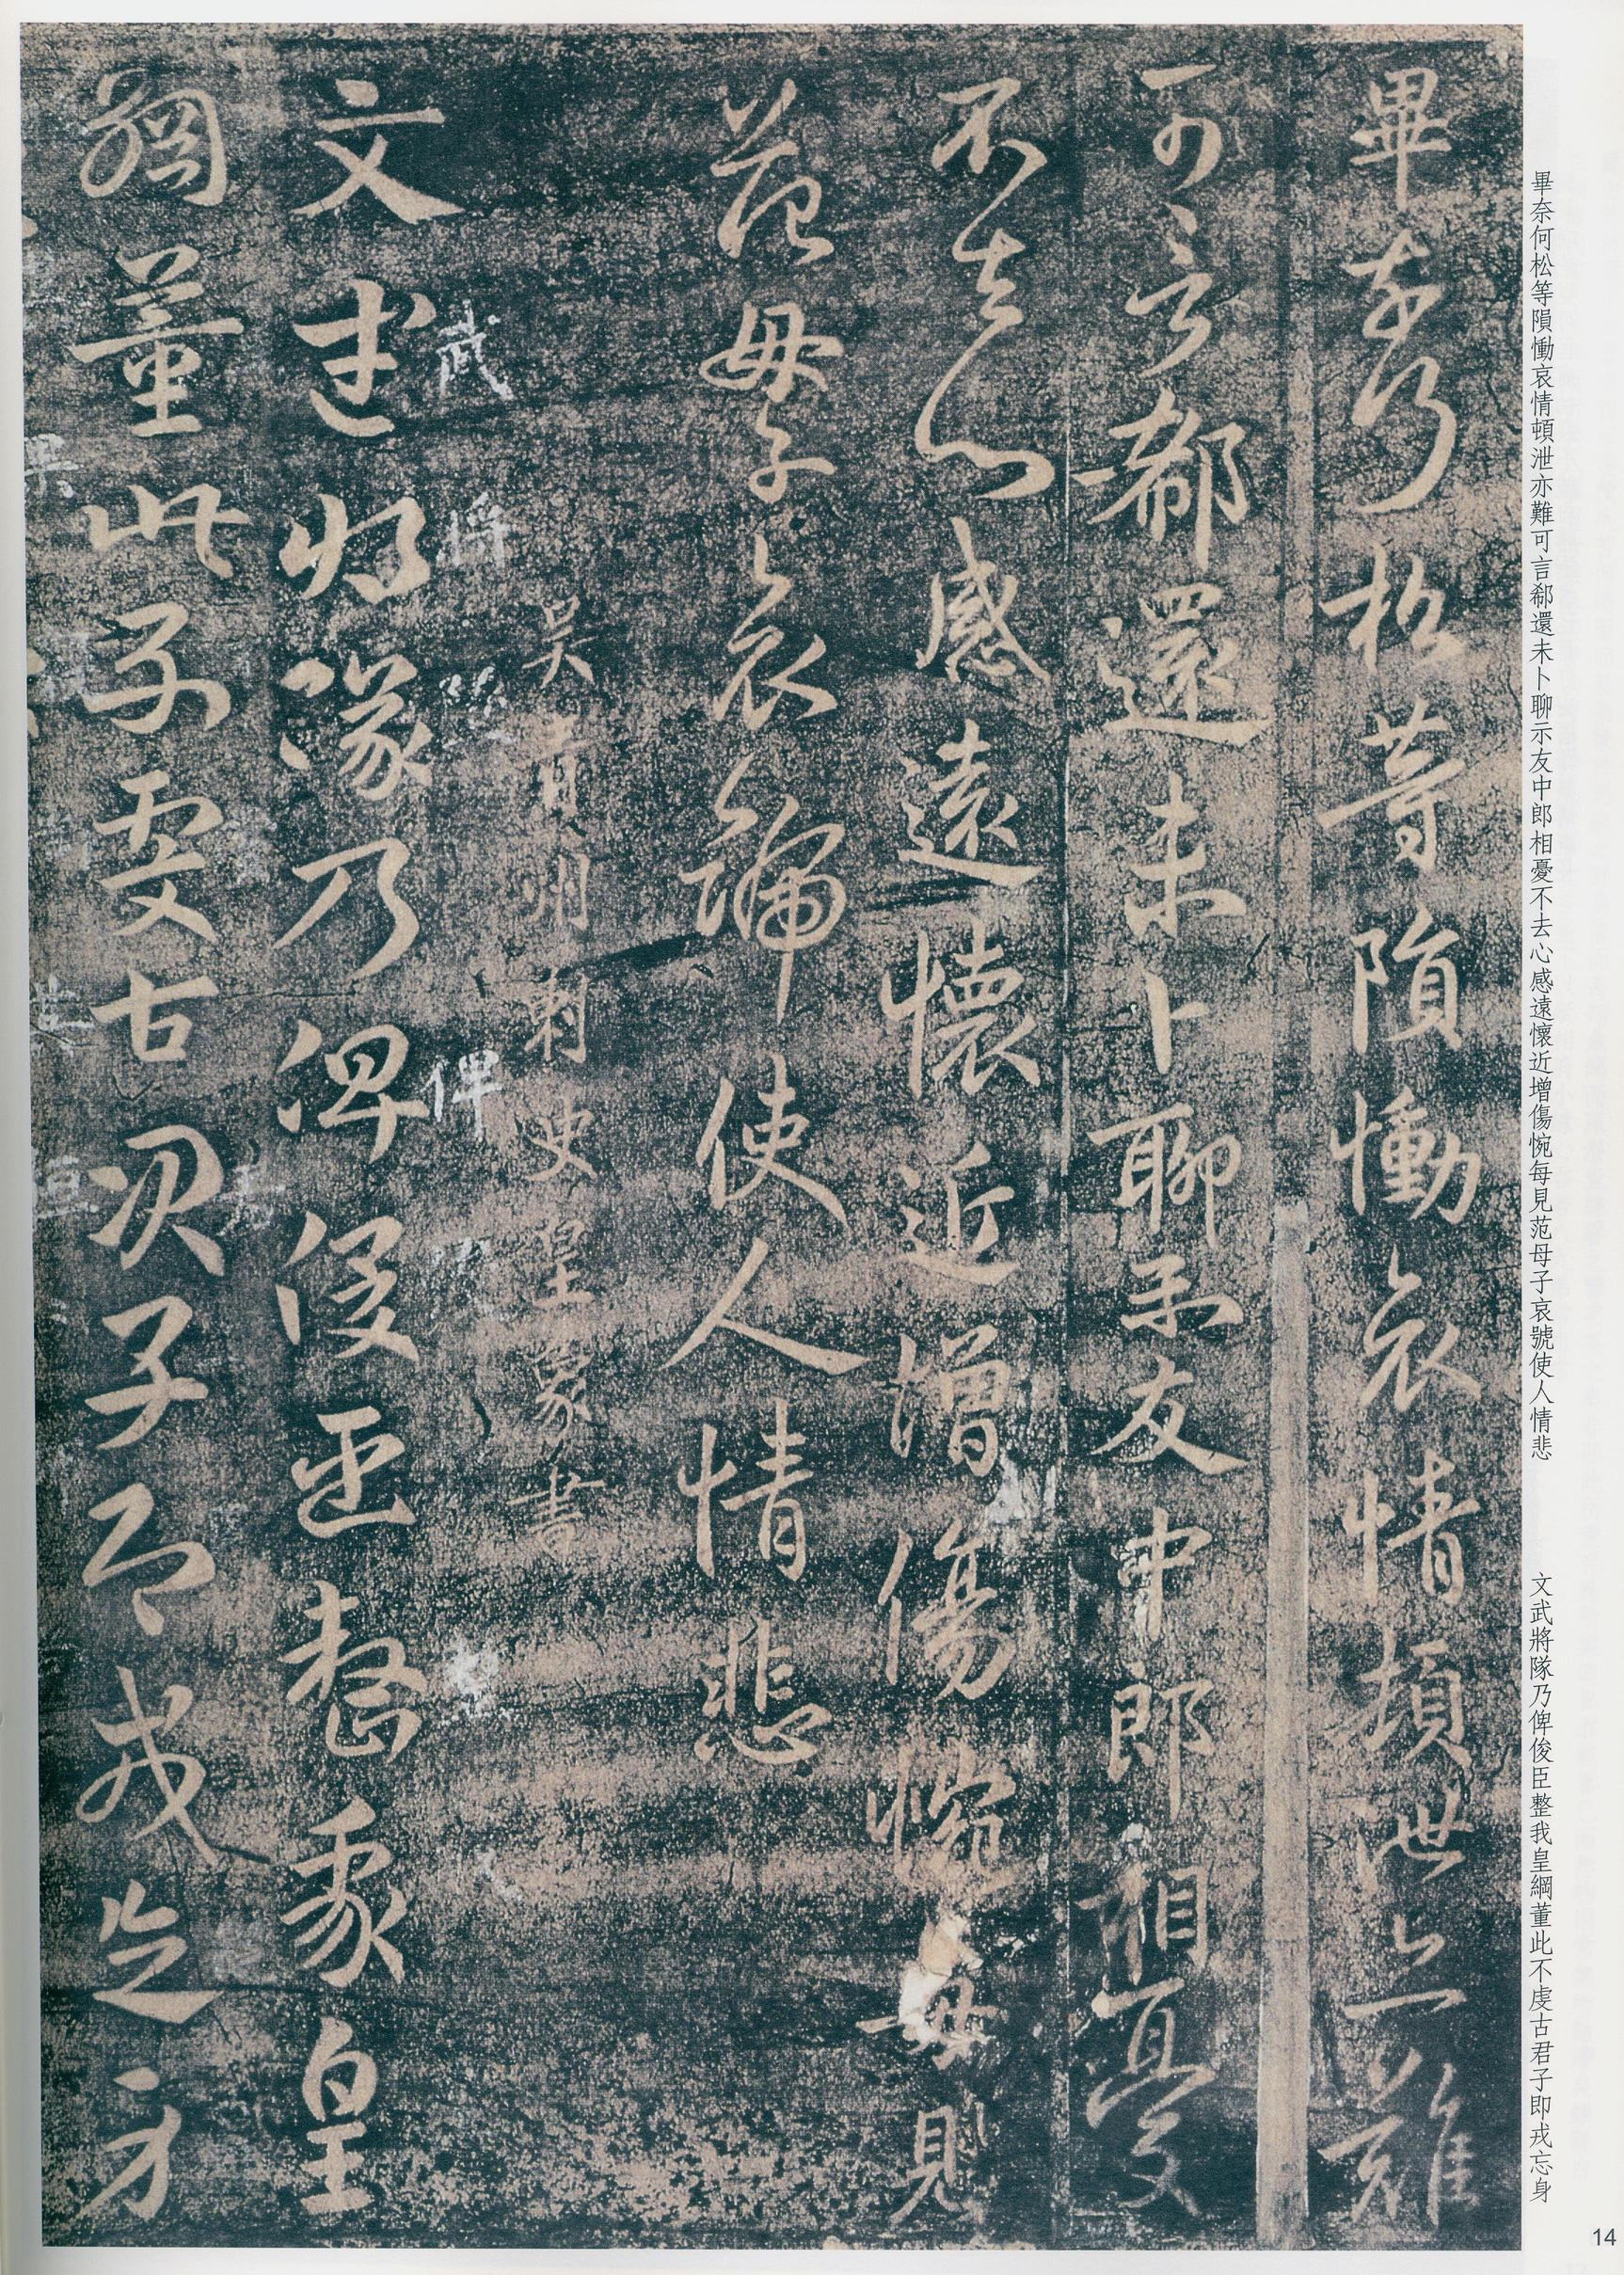 畢奈何松等隕慟哀情頓泄亦難
可言郗還未卜聊示友中郎相憂
不去心感遠懷近增傷惋每見
范母子哀號使人情悲
吳青州刺史皇象書
文武將隊乃俾俊臣整我皇
綱董此不虔古君子即戎忘身
武
將
俾
畢奈何松等隕慟哀情頓泄亦難可言郗還未卜聊示友中郎相憂不去心感遠懷近增傷惋每見范母子哀號使人情悲
文武將隊乃俾俊臣整我皇綱董此不虔古君子即戎忘身
14